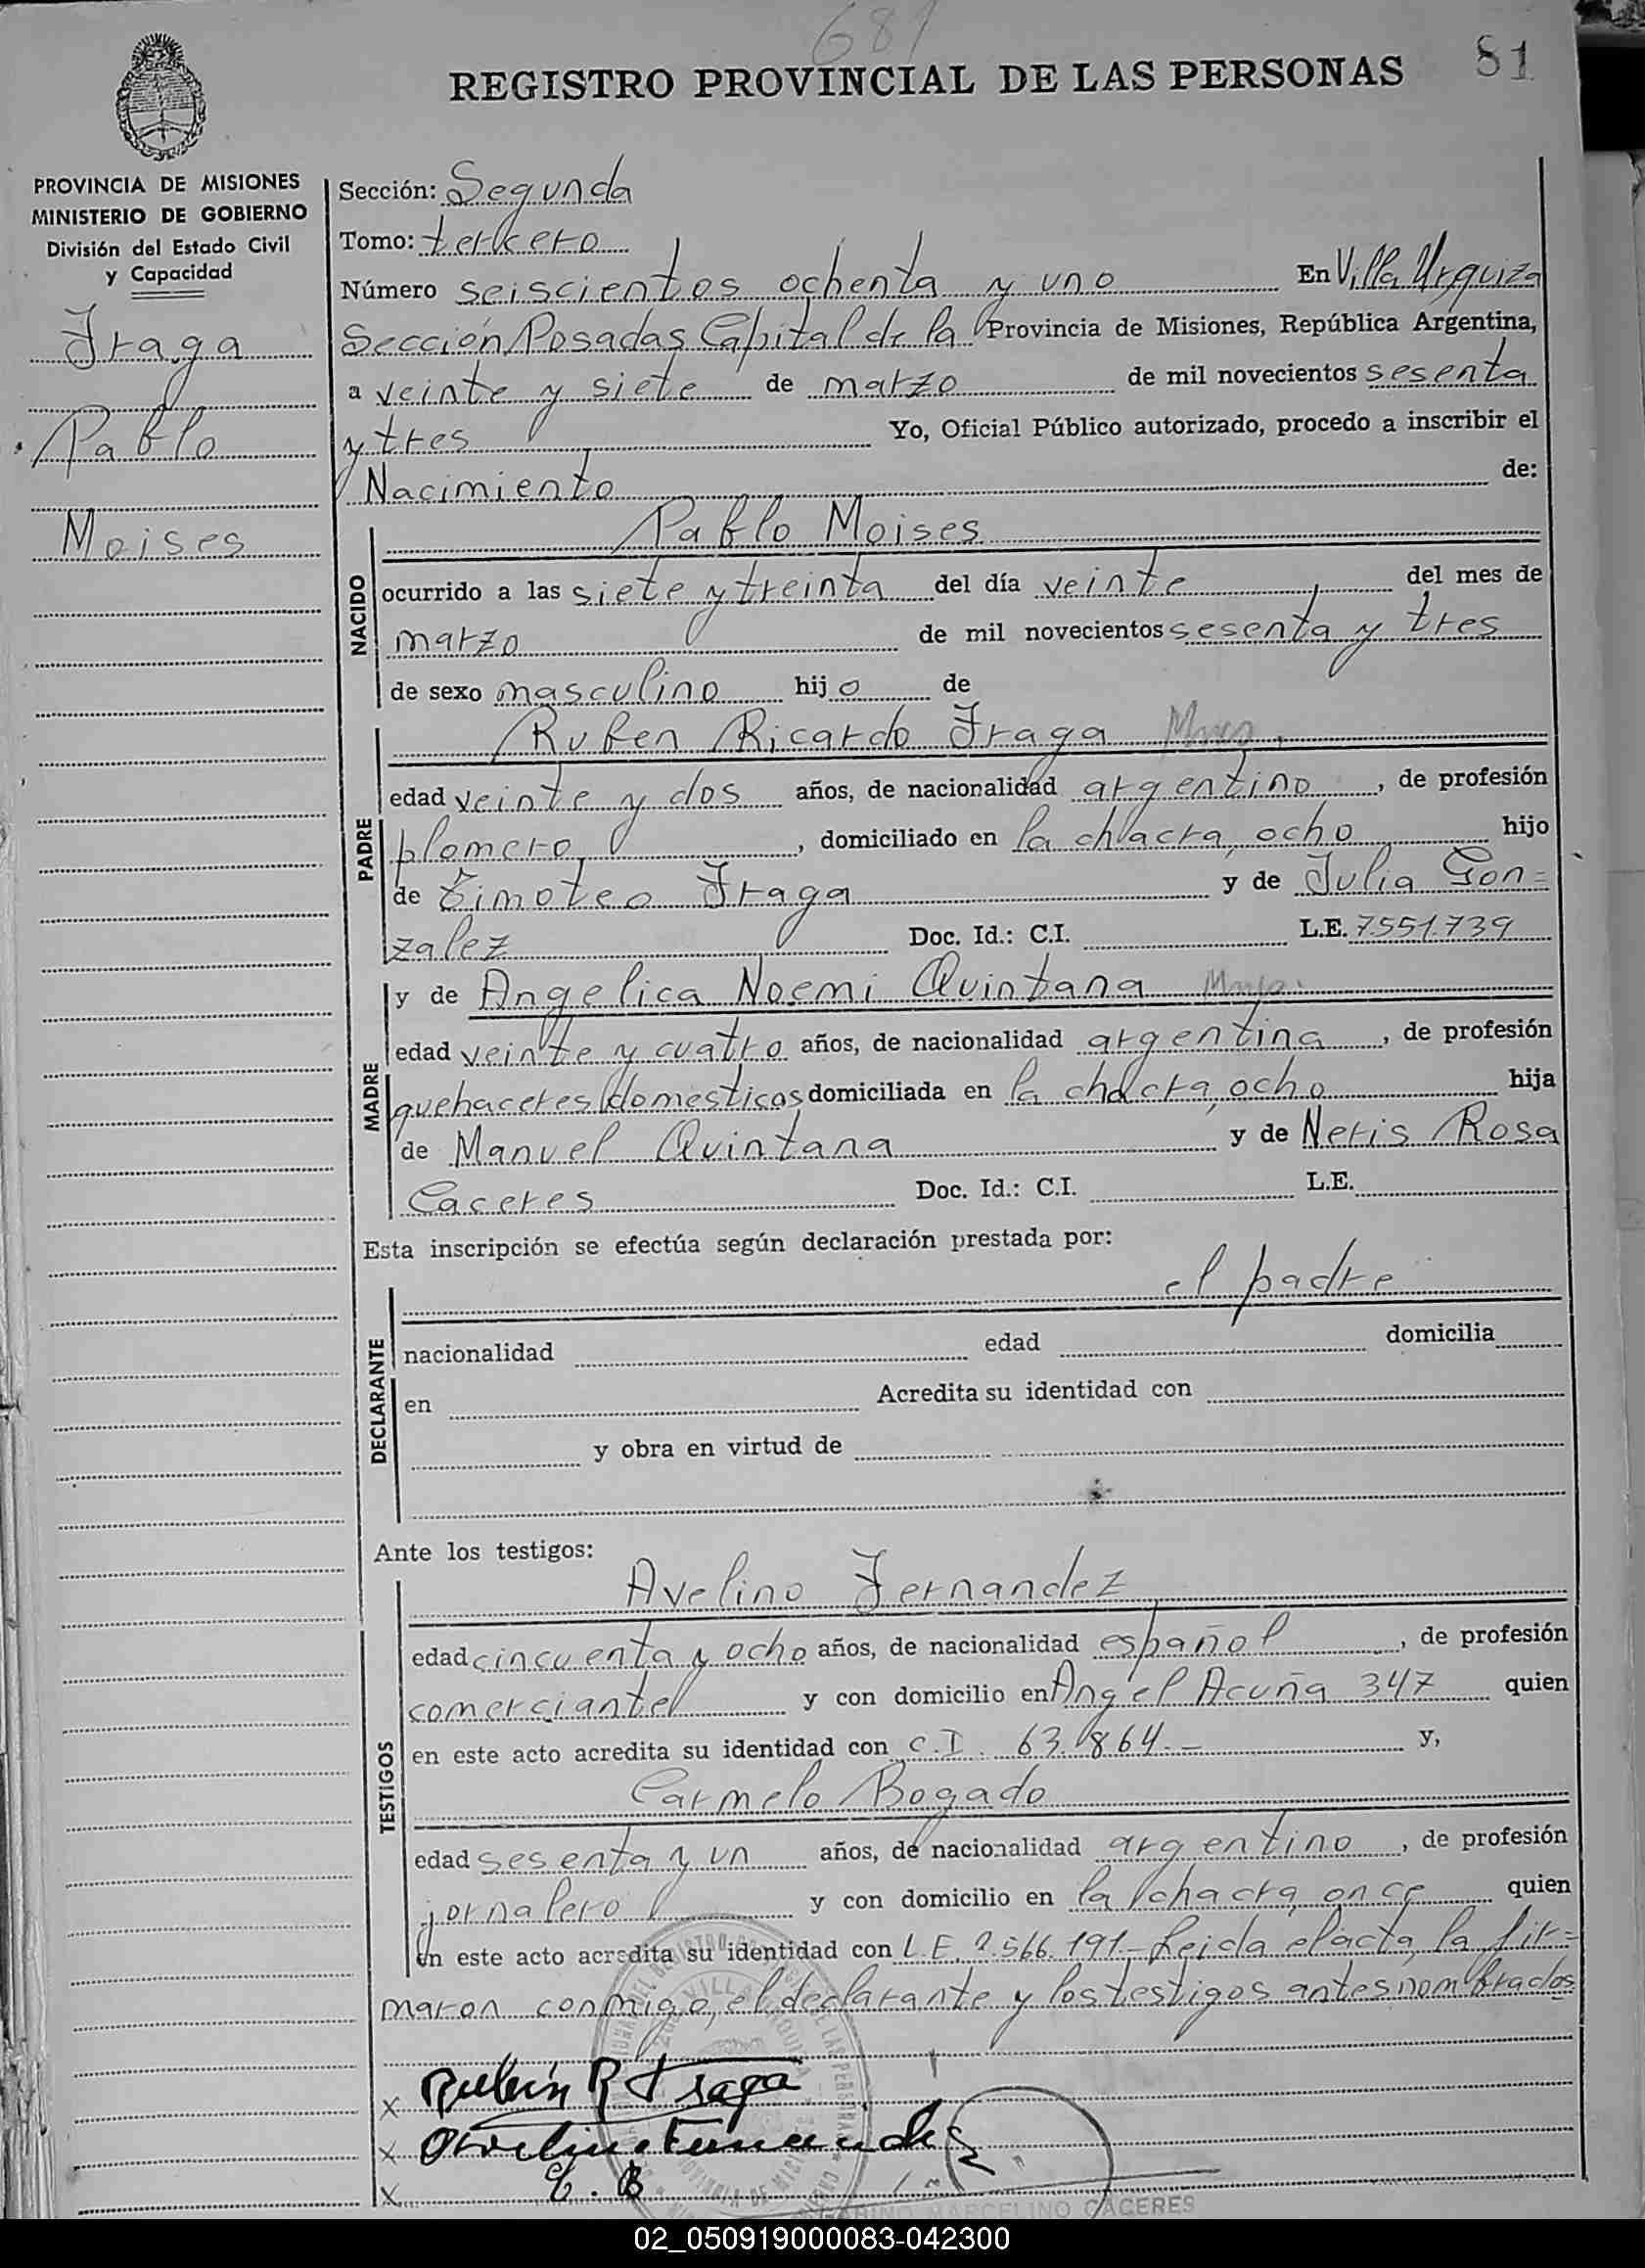 681
81
REGISTRO PROVINCIAL DE LAS PERSONAS
PROVINCIA DE MISIONES
MINISTERIO DE GOBIERNO
División del Estado Civil
y Capacidad
Fraga
Pablo
Moises
Sección: Segunda
Tomo: tercero
Número seiscientos ochenta y uno En Villa Urquiza
Sección Posadas Capital de la Provincia de Misiones, República Argentina,
a veinte y siete de marzo de mil novecientos sesenta
y tres Yo, Oficial Público autorizado, procedo a inscribir el
Nacimiento de:
NACIDO
Pablo Moises
ocurrido a las siete y treinta del día veinte del mes de
marzo de mil novecientos sesenta y tres
de sexo masculino hijo de
PADRE
Ruben Ricardo Fraga
edad veinte y dos años, de nacionalidad argentino, de profesión
plomero, domiciliado en la chacra ocho hijo
de Timoteo Fraga y de Julia Gon=
zalez Doc. Id.: C.I. L.E. 7.551.739
MADRE
y de Angelica Noemi Quintana
edad veinte y cuatro años, de nacionalidad argentina, de profesión
quehaceres domesticos domiciliada en la chacra, ocho hija
de Manuel Quintana y de Neris Rosa
Caceres Doc. Id.: C.I. L.E.
Esta inscripción se efectúa según declaración prestada por:
DECLARANTE
el padre
nacionalidad edad domicilia
en Acredita su identidad con
y obra en virtud de
Ante los testigos:
TESTIGOS
Avelino Fernandez
edad cincuenta y ocho años, de nacionalidad español, de profesión
comerciante y con domicilio en Angel Acuña 347 quien
en este acto acredita su identidad con C.I. 63.864.- y,
Carmelo Bogado
edad sesenta y un años, de nacionalidad argentino, de profesión
jornalero y con domicilio en la chacra, once quien
en este acto acredita su identidad con L.E. 2.566.191- Leida el acta, la fir=
maron conmigo, el declarante y los testigos antes nombrados
x Rubén R Fraga
x Avelino Fernandez
x C. B
MARCELINO CACERES
02_050919000083-042300